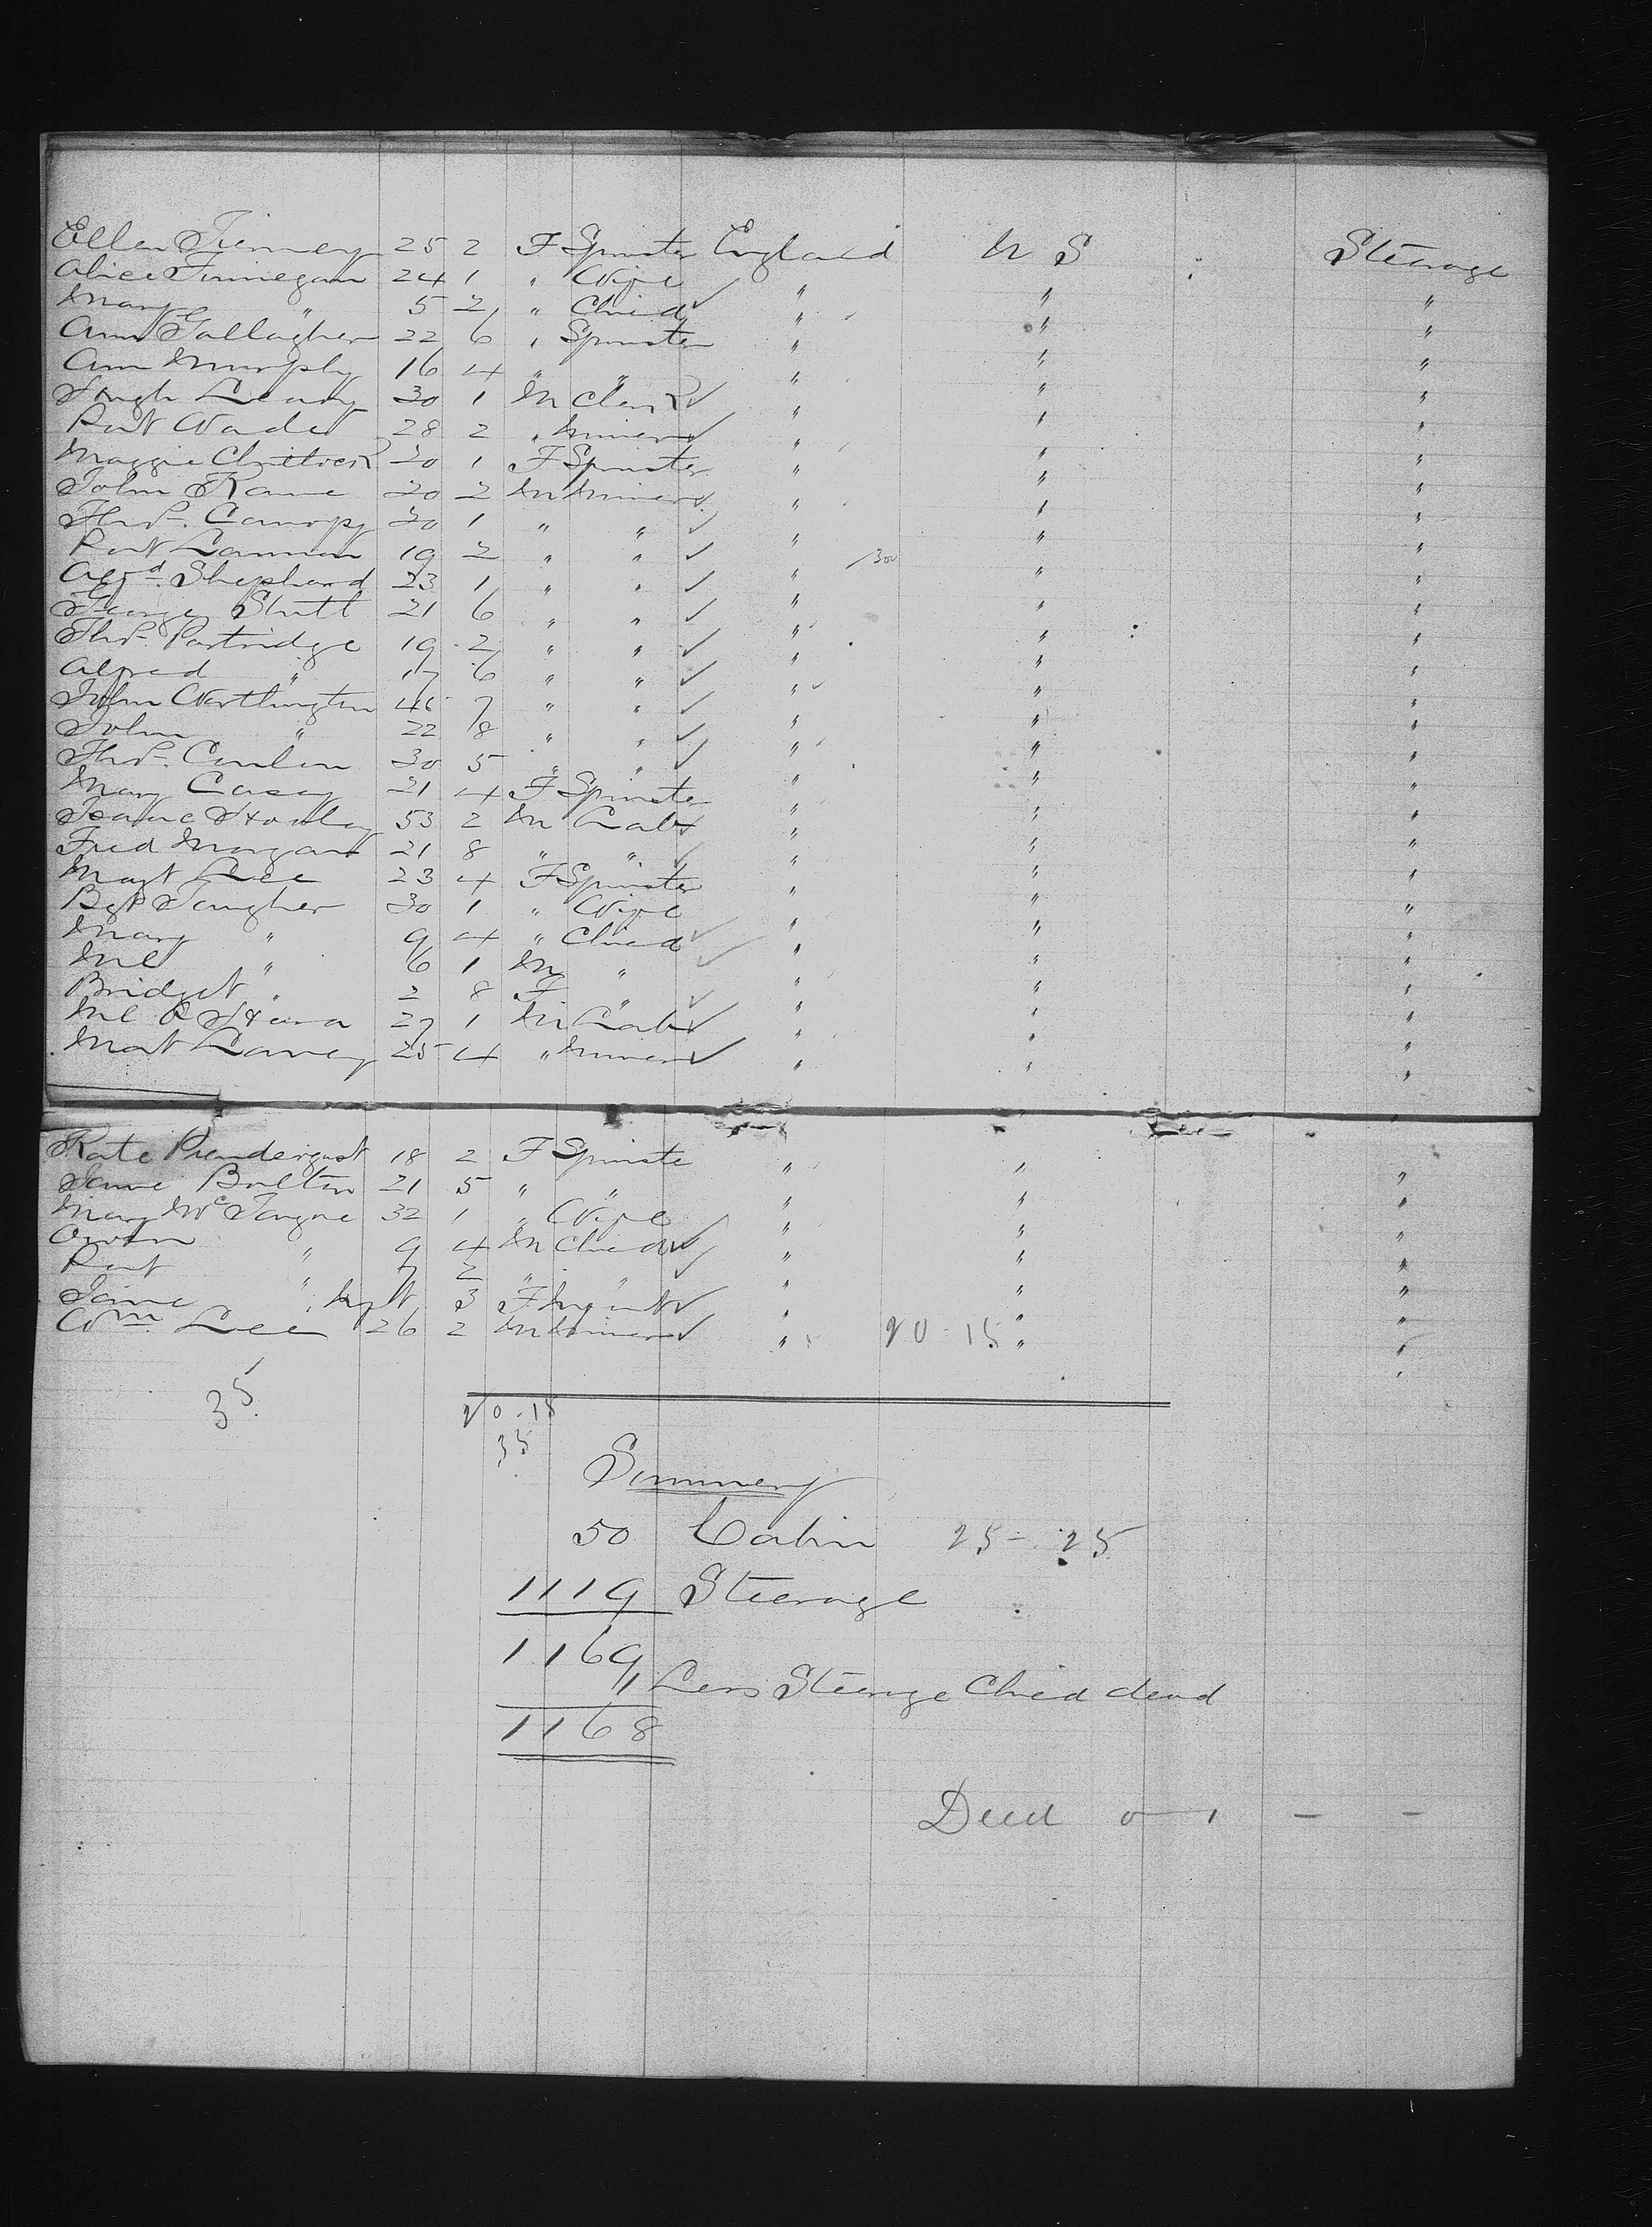 Ellen Tierney 25 2 F Spinster England U S Steerage
Alice Finnegan 24 1 " Wife " " "
Mary " 5 2 " Child " " "
Ann Gallagher 22 6 " Spinster " " "
Ann Murphy 16 4 " " " " "
Hugh 30 1 M Clerk " " "
Pat Wade 28 2 " Miner " " "
Maggie 20 1 F Spinster " " "
John Kane 20 2 M Miner " " "
Thos. 20 1 " " " " "
Pat Lannon 19 2 " " " 300 " "
Alfd. Shephard 23 1 " " " " "
George 21 6 " " " " "
Thos. Partridge 19 2 " " " " "
Alfred " 17 6 " " " " "
John Worthington 46 7 " " " " "
John " 22 8 " " " " "
Thos. Conlon 30 5 " " " " "
Mary Casey 21 4 F Spinster " " "
Isaac 53 2 M Lab " " "
Fred Morgan 21 8 " " " " "
Magt Lee 23 4 F Spinster " " "
Bgt Tougher 30 1 " Wife " " "
Mary " 9 4 " Child " " "
Ml " 6 1 M " " " "
Bridget " 2 8 F " " " "
Ml O Hara 27 1 M Lab " " "
Mat Lavey 25 4 " Miner " " "
Kate Prendergast 18 2 F Spinste " " "
Jane Bolton 21 5 " " " " "
Mary McTangue 32 1 " Wife " " "
Owen " 9 4 M Child " " "
Pat " 7 2 " " " " "
Jane " Inft 3 F Infant " " "
Wm. Lee 26 2 M Miner " 20-15 " "
35
20-15
35
Summery
50 Cabin 25-25
1119 Steerage
1169
1 Less Steerage Child dead
1168
Died 0 1 - -